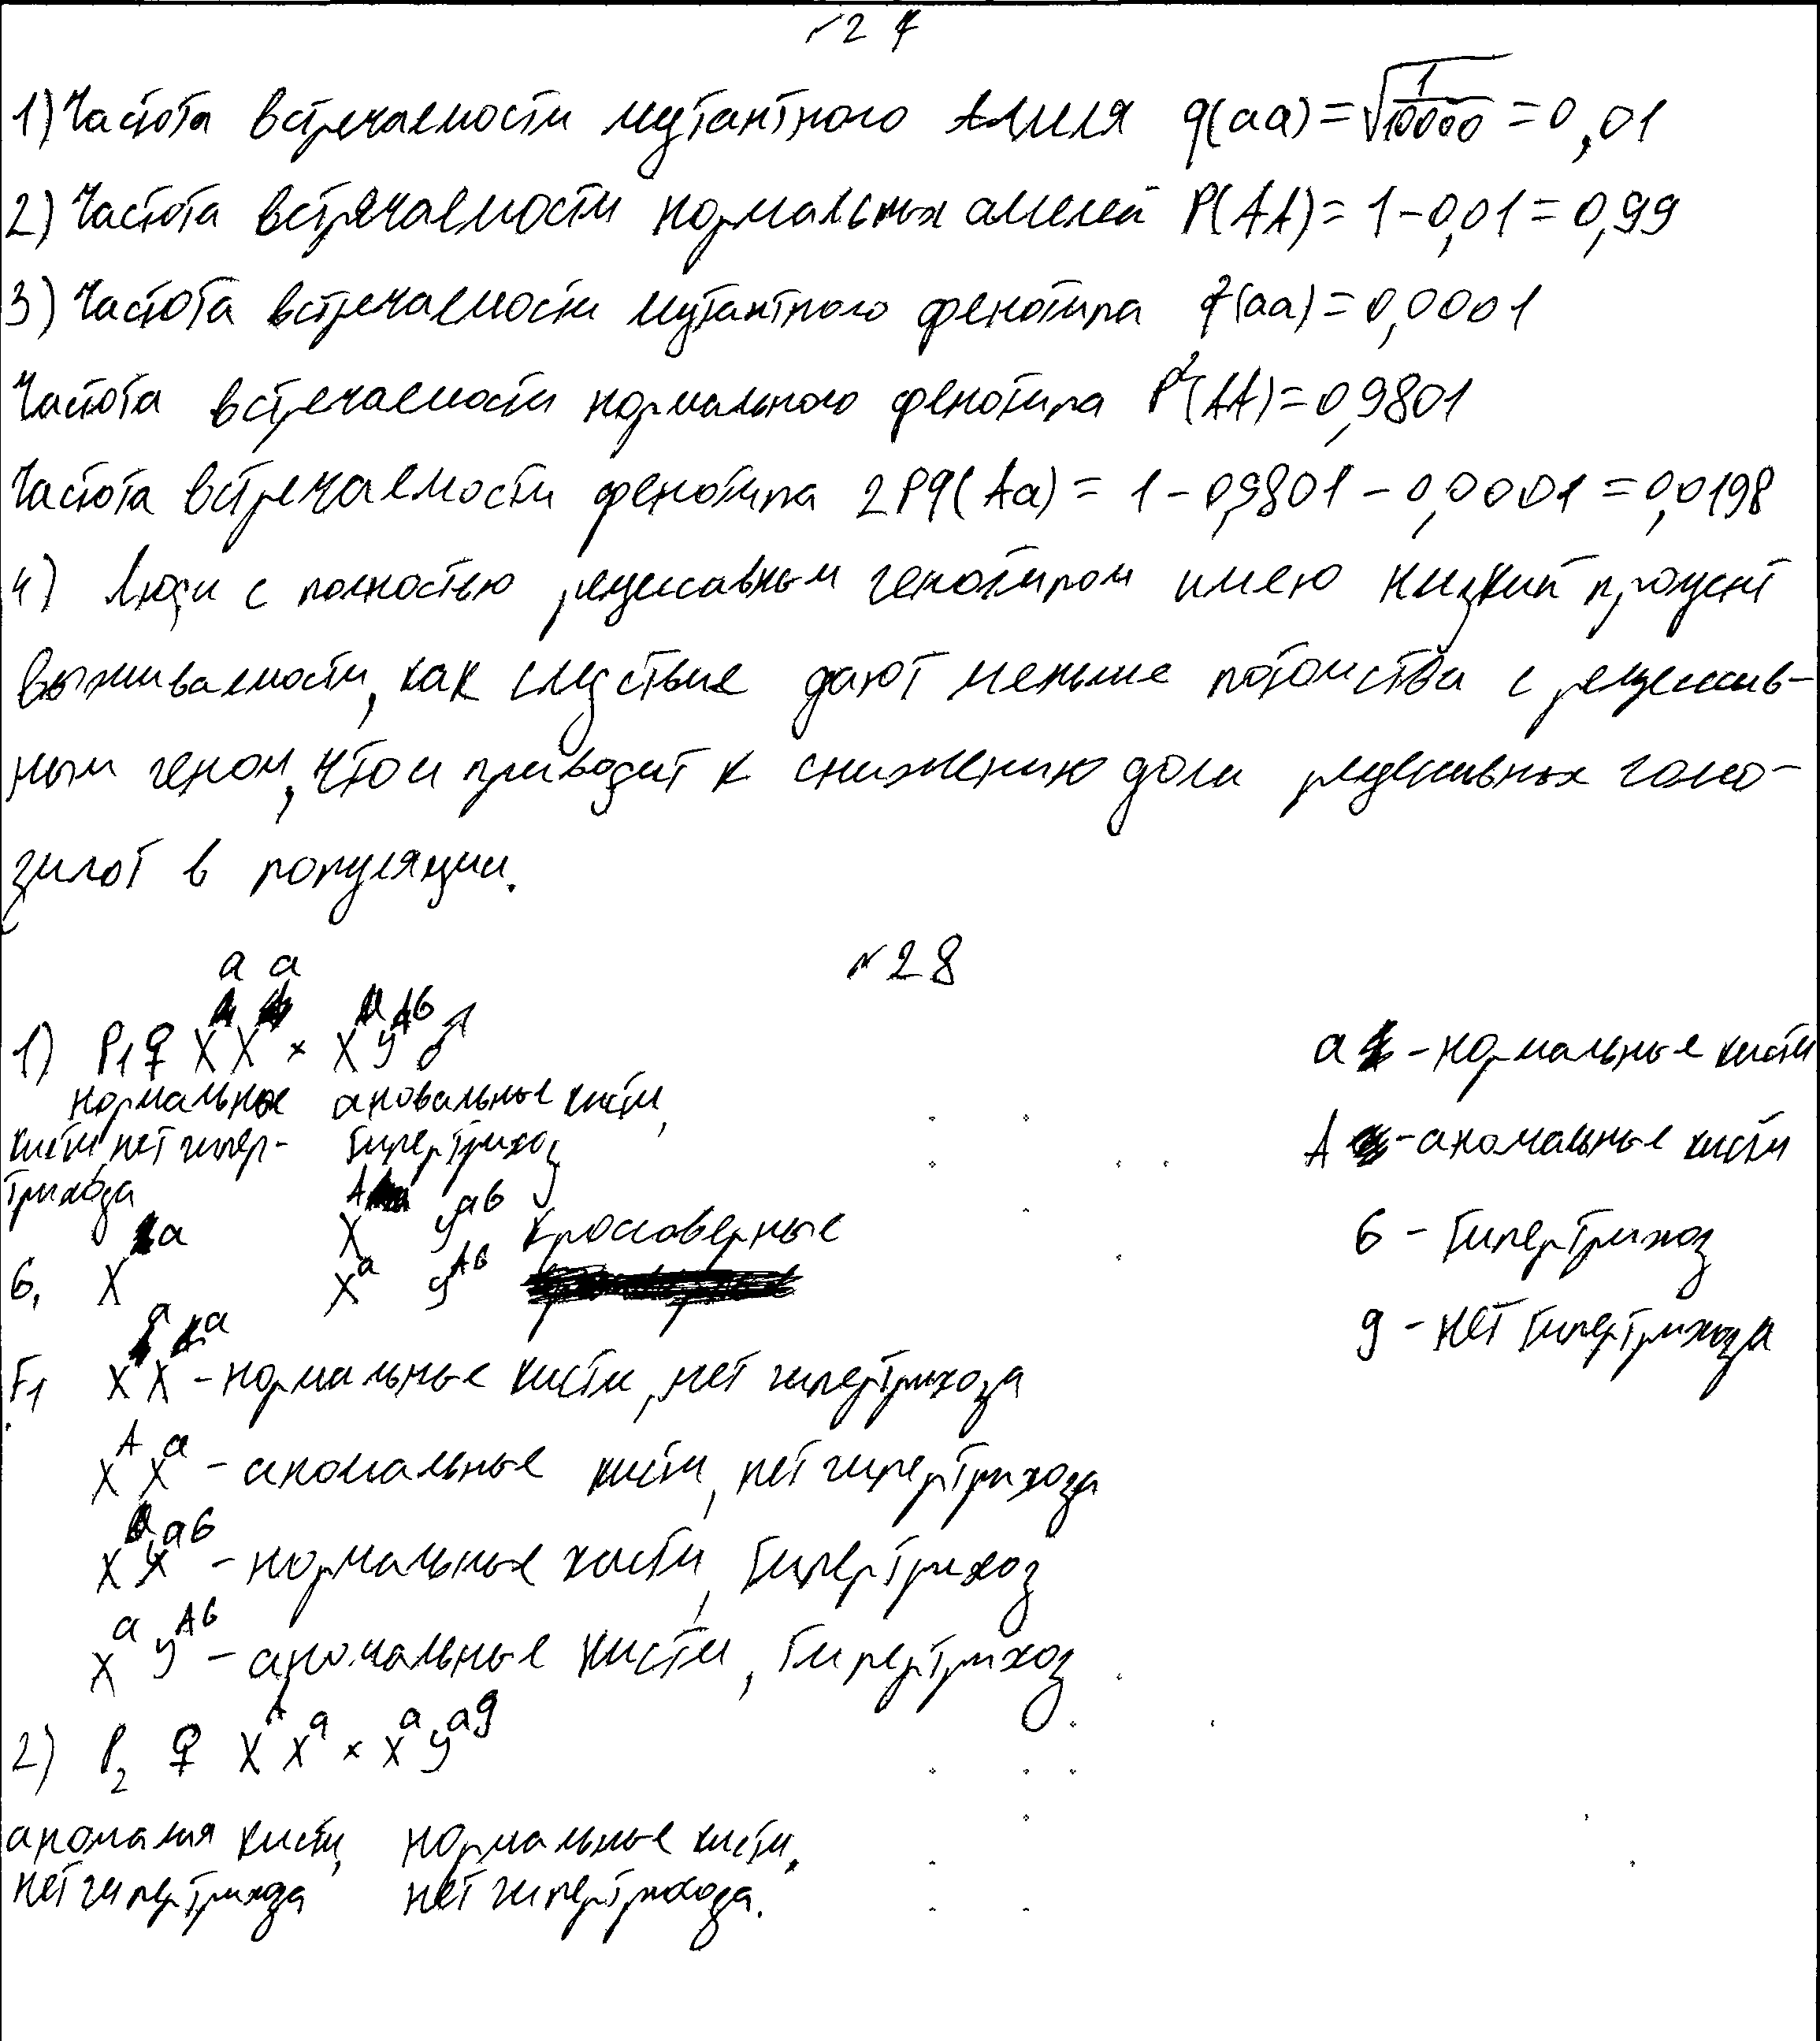 №27
1) Частота встречаемости мутантного аллеля q(aa) = √1/10000 = 0,01
2) Частота встречаемости нормальных аллелей P(AA) = 1-0,01 = 0,99
3) Частота встречаемости мутантного фенотипа q²(aa) = 0,0001
Частота встречаемости нормального фенотипа P²(AA) = 0,9801
Частота встречаемости фенотипа 2Pq(Aa) = 1 - 0,9801 - 0,0001 = 0,0198
4) Люди с полностью рецессивным генотипом имею низкий процент
выживаемости, как следствие дают меньше потомства с рецессив-
ным геном, что и приводит к снижению доли рецесивных гомо-
зигот в популяции.
№28
1) P1 ♀ XᵃXᵃ × XᴬYᴬᵇ ♂
а - нормальные кисти
нормальные аномальные кисти,
кисти, нет гипер- гипертрихоз
А - аномальные кисти
трихоза
Xᴬ Yᵃᵇ кроссоверные
б - гипертрихоз
G, Xᵃ Xᵃ Yᴬᵇ
g - нет гипертрихоза
F1 XᵃXᵃ - нормальные кисти, нет гипертрихоза
XᴬXᵃ - аномальные кисти, нет гипертрихоза
XᵃYᵃᵇ - нормальные кисти, гипертрихоз
XᵃYᴬᵇ - аномальные кисти, гипертрихоз
2) P2 ♀ XᴬXᵃ × XᵃYᵃᵍ
аномалия кисти, нормальные кисти,
нет гипертрихоза нет гипертрихоза.